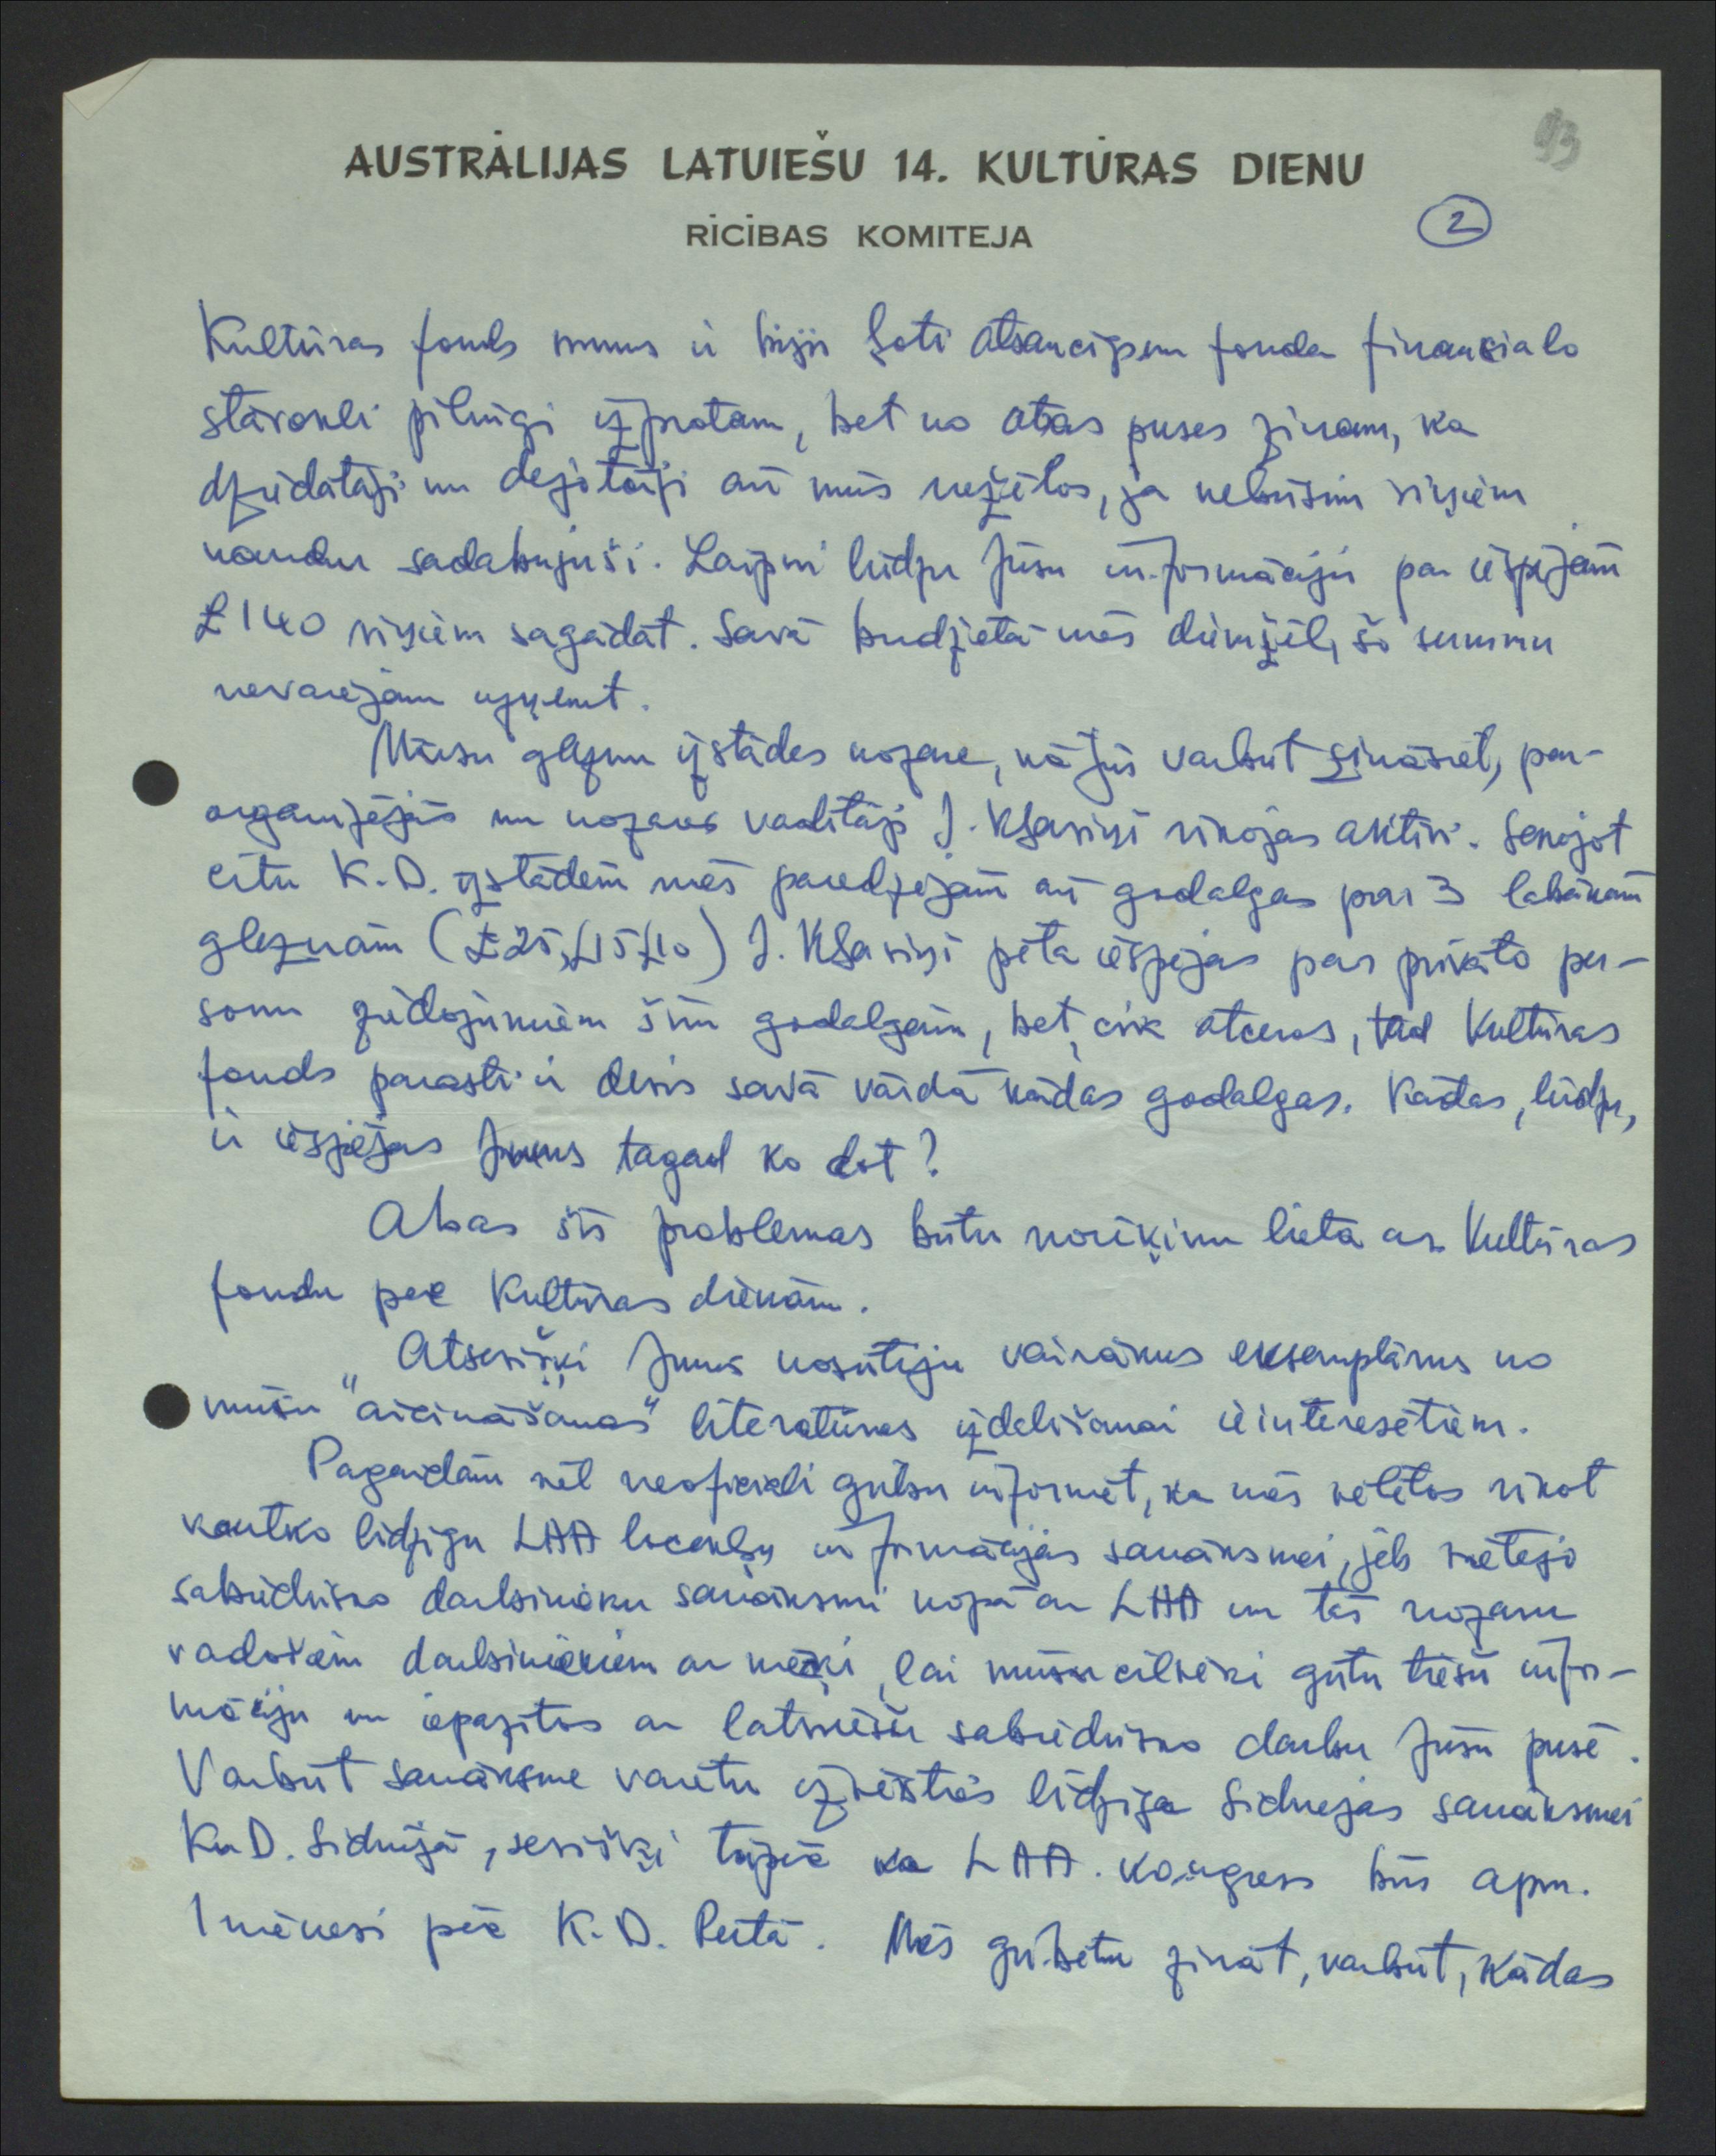 93
AUSTRĀLIJAS LATVIEŠU 14. KULTŪRAS DIENU
RĪCĪBAS KOMITEJA
2
Kultūras fonds mums ir bijis ļoti atsaucīgs un fonda finansialo
stāvokli pilnīgi izprotam, bet no otras puses zinam, ka
dziedātāji un dejotāji arī mūs nežēlos, ja nebūsim viņiem
naudu sadabujuši. Laipni lūdzu Jūsu informāciju par iespējām
£140 viņiem sagādat. Savā budžetā mēs diemžēl, šo summu
nevarejām uzņemt.
Mūsu gleznu izstādes nozare, kā Jūs varbūt zināsiet, par-
organizējās un nozares vadītājs J. Kļaviņš rīkojas aktīvi. Sekojot
citu K.D. izstādēm mēs paredzējām arī godalgas par 3 labākam
gleznām (£25, £15 £10) J. Kļaviņš pēta iespējas par privāto per-
sonu ziedojumiem šīm godalgām, bet, cik atceros, tad Kultūras
fonds parasti ir devis savā vārdā kādas godalgas. Kādas, lūdzu,
ir iespējas Jums tagad ko dot?
Abas šīs problemas būtu norēķinu lieta ar Kultūras
fondu pēc Kultūras dienām.
Atsevišķi Jums nosūtīju vairākus eksemplārus no
mūsu "aicināšanas" literatūras izdalīšanai ieinteresētiem.
Pagaidām vēl neoficiali gribu informēt, ka mēs vēlētos rīkot
kautko līdzīgu LAA locekļu informācijas sanāksmei, jeb vietējo
sabiedrisko darbinieku sanāksmi kopā ar LAA un tās nozaru
vadošiem darbiniekiem ar mērķi, lai mūsu cilvēki gūtu tiešu infor-
māciju un iepazītos ar latviešu sabiedrisko darbu Jūsu pusē.
Varbūt sanāksme varētu izvērsties līdzīga Sidnejas sanāksmei
K.D. Sidnejā, sevišķi tāpēc ka LAA. kongress būs apm.
1 mēnesi pēc K.D. Pertā. Mēs gribetu zināt, varbūt, kādas